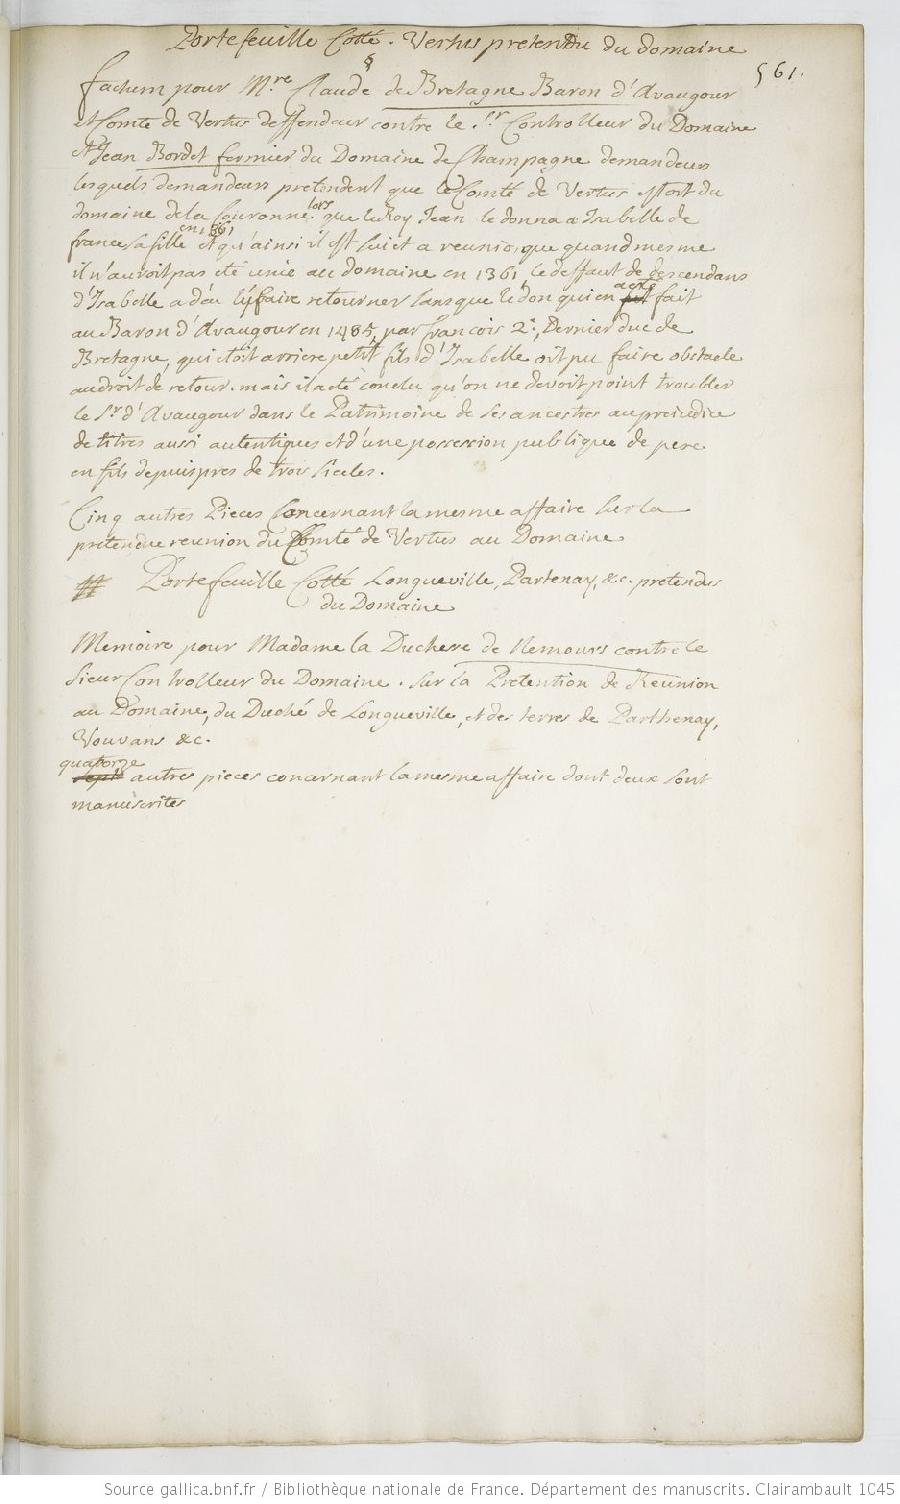 Portefeuille Cotté. Vertus pretendu du domaine
§ 561.
factum pour M.re Claude de Bretagne Baron d'Avaugour
et Comte de Vertus deffendeur contre le S.r Controlleur du Domaine
et Jean Bordet fermier du Domaine de Champagne demandeurs
lesquels demandeurs pretendent que le Comté de Vertus estoit du
domaine de la Couronne lors que le Roy Jean le donna a Isabelle de
france sa fille en 1361 et qu'ainsi il est suiet a reunio, que quand mesme
il n'auroit pas eté unie au domaine en 1361, le deffaut de descendans
d'Isabelle a deu l'y faire retourner sans que le don qui en a eté fait
au Baron d'Avaugour en 1485, par francois 2.e, Dernier duc de
Bretagne, qui étoit arriere petit fils d'Isabelle ait pu faire obstacle
au droit de retour. mais il a eté conclu qu'on ne devoit point troubler
le S.r d'Avaugour dans le Patrimoine de ses ancestres au preiudice
de titres aussi autentiques et d'une possession publique de pere
en fils depuis pres de trois siecles.
Cinq autres Pieces Concernant la mesme affaire sur la
pretendue reunion du Comté de Vertus au Domaine
Portefeuille Cotté Longueville, Partenay, &c. pretendus
du Domaine
Memoire pour Madame la Duchesse de Nemours contre le
sieur Controlleur du Domaine. sur la Pretention de Reunion
au Domaine, du Duché de Longueville, et des terres de Parthenay,
Vouvans &c.
quatorze
sept autres pieces concernant la mesme affaire dont deux sont
manuscrites
Source gallica.bnf.fr / Bibliothèque nationale de France. Département des manuscrits. Clairambault 1045